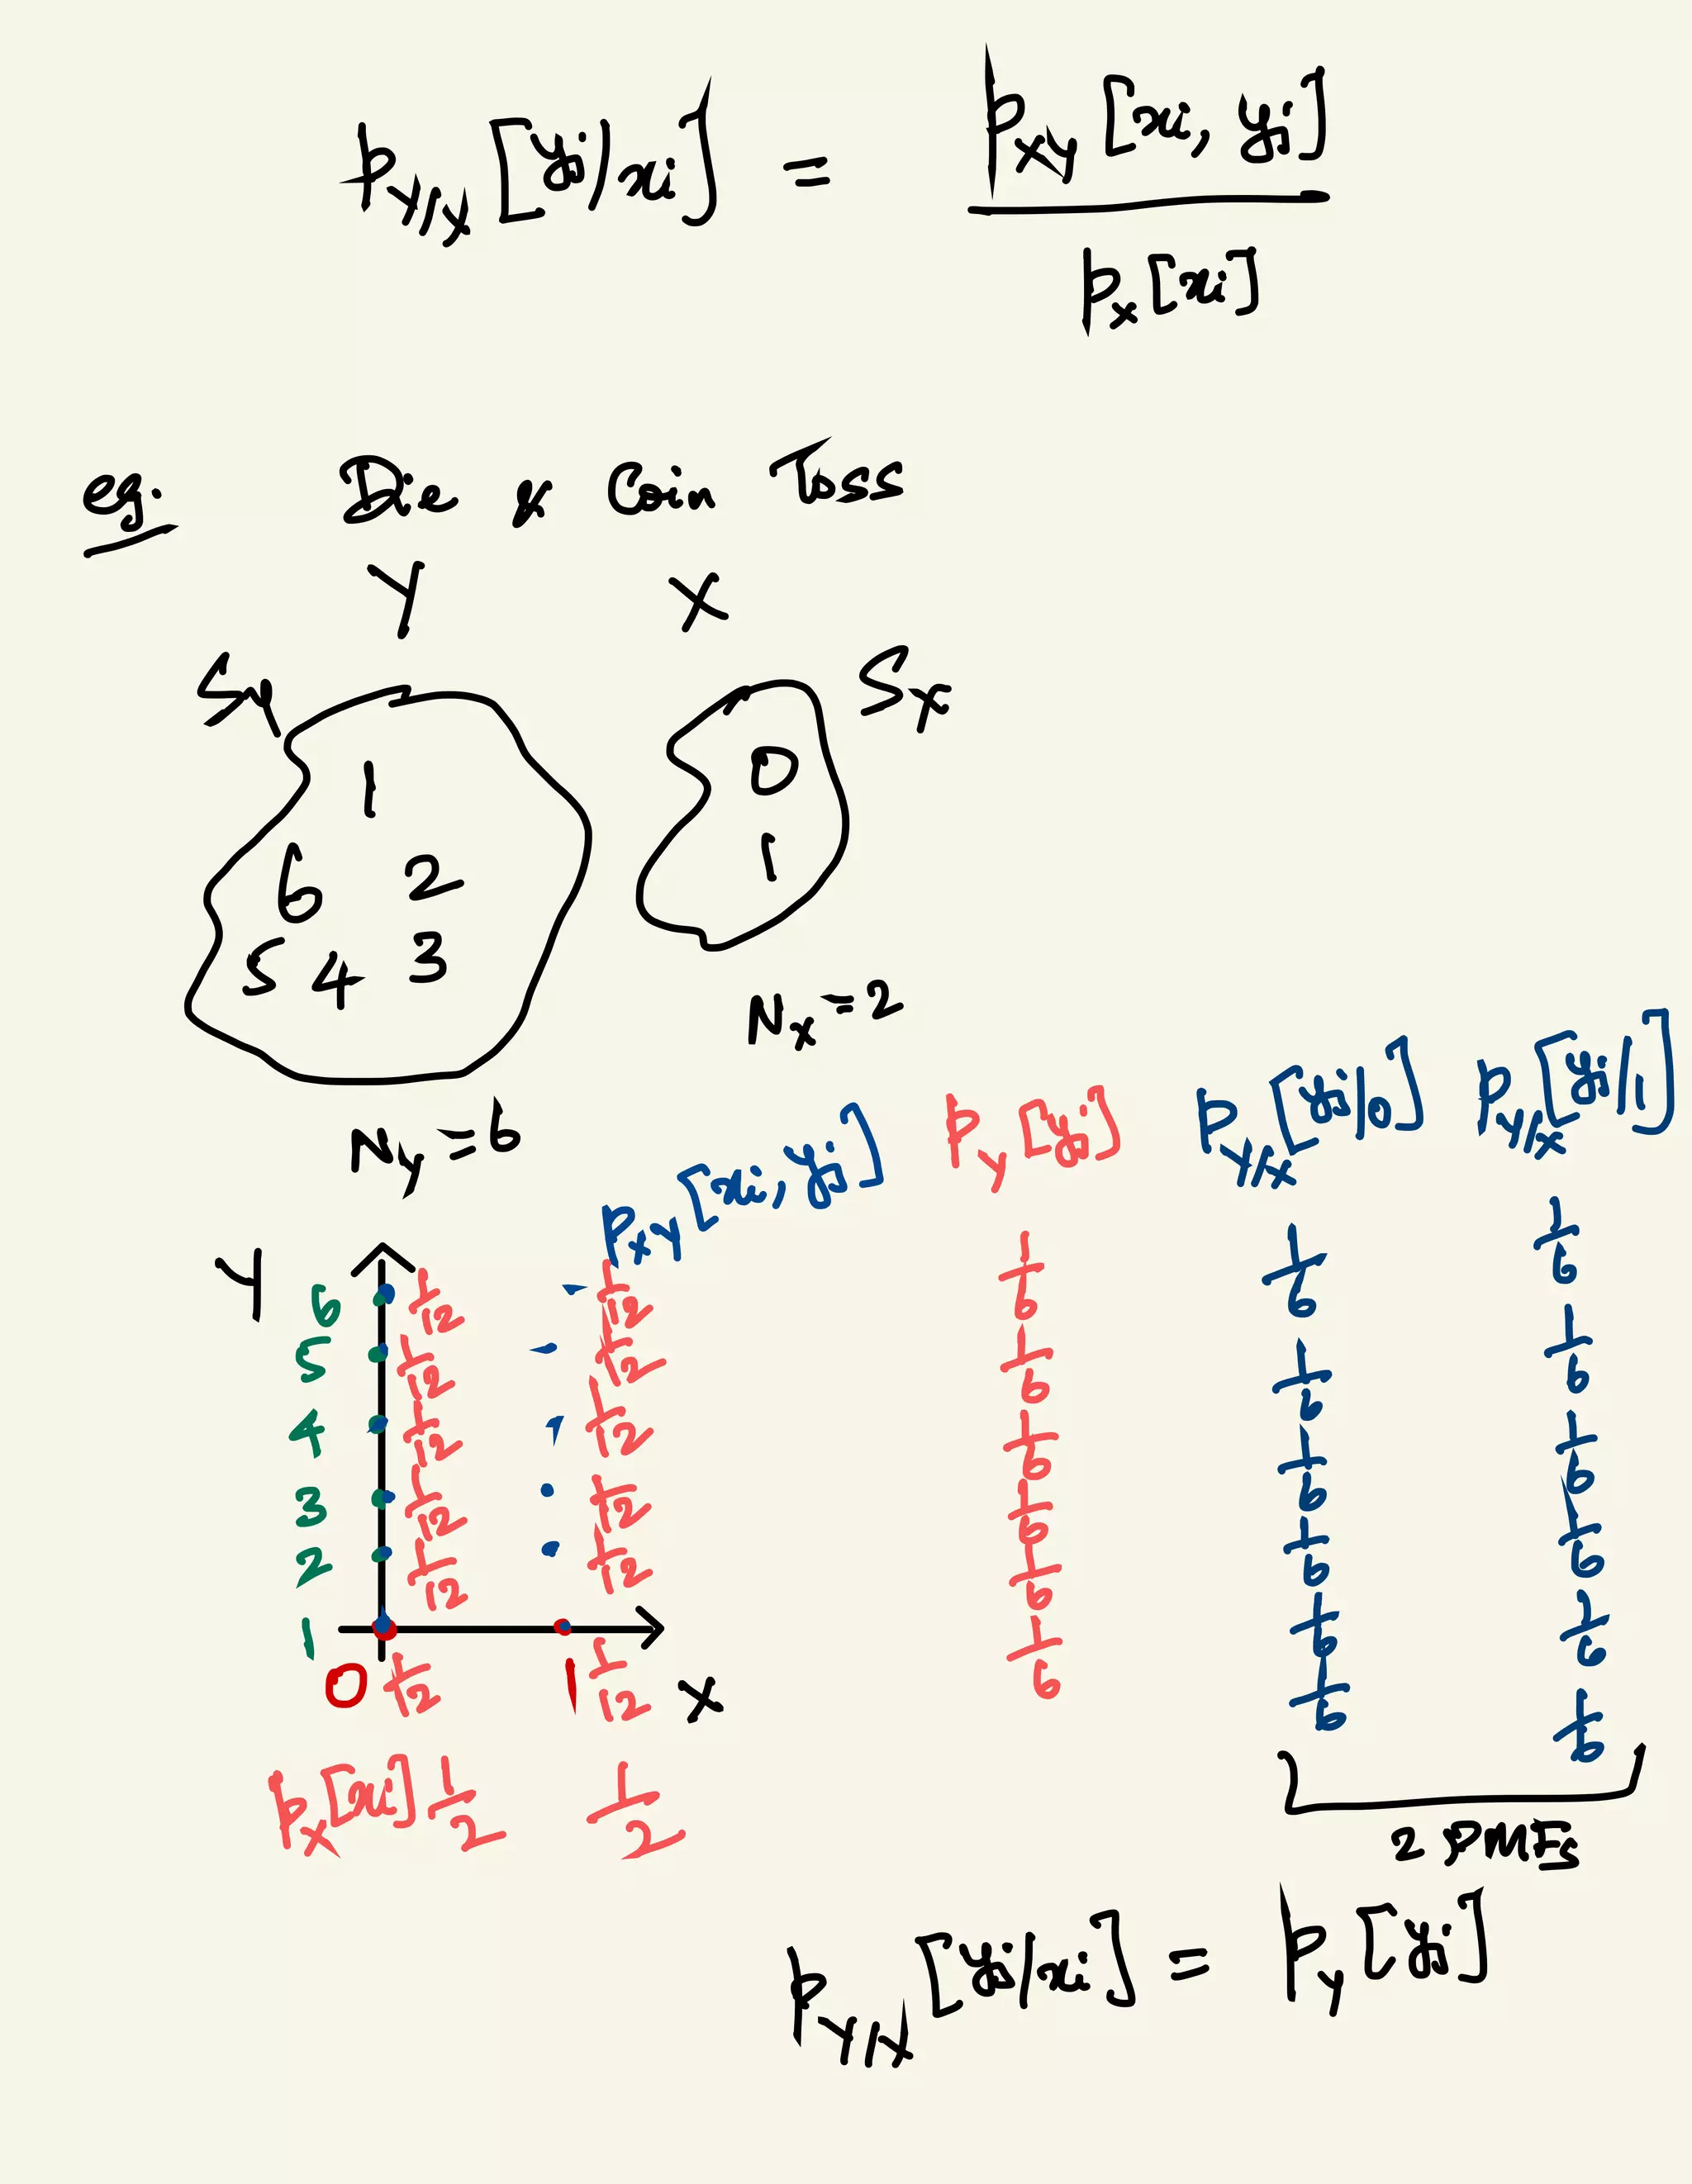 p_{Y/X} [y_j/x_i] = p_{XY} [x_i, y_j] / p_X [x_i]
eg. Die & Coin Toss
Y X
S_Y S_X
1
0
6 2
1
5 4 3
N_X = 2
N_Y = 6
p_{XY} [x_i, y_j] p_Y [y_j] p_{Y/X} [y_j/0] p_{Y/X} [y_j/1]
Y
6 1/12 1/12 1/6 1/6 1/6
5 1/12 1/12 1/6 1/6 1/6
4 1/12 1/12 1/6 1/6 1/6
3 1/12 1/12 1/6 1/6 1/6
2 1/12 1/12 1/6 1/6 1/6
1 1/6 1/6 1/6
0 1/12 1 1/12 X
p_X [x_i] 1/2 1/2
2 PMFs
p_{Y/X} [y_j/x_i] = p_Y [y_j]